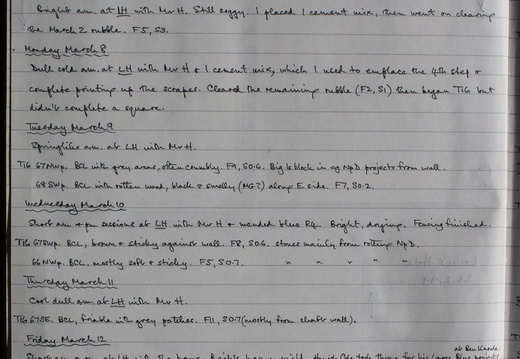 Bright am. at LH with Mr H. Still soggy. I placed 1 cement mix, then went on clearing
the March 2 rubble. F5, S3.
Monday March 8
Dull cold am. at LH with Mr H & 1 cement mix, which I used to emplace the 4th step &
complete pointing up the scrapes. Cleared the remaining rubble (F2, S1) then began T16 but
didn't complete a square.
Tuesday March 9
Springlike am. at LH with Mr H.
T16 67NWp. BCL with grey areas, often crumbly. F9, S0.6. Big block in NpD projects from wall.
68SWp. BCL with rotten wood, black & smelly (MG?) along E side. F7, S0.2.
Wednesday March 10
Short am & pm sessions at LH with Mr H & mended blue R4. Bright, drying. Fencing finished.
T16 67SWp. BCL, brown & sticky against wall. F8, S0.6. stones mainly from rotting NpD.
66NWp. BCL. mostly soft & sticky. F5, S0.7. " " " " "
Thursday March 11
Cool dull am. at LH with Mr H.
T16 67SE. BCL, friable with grey patches. F11, S0.7 (mostly from chalk wall).
Friday March 12
at LH with the